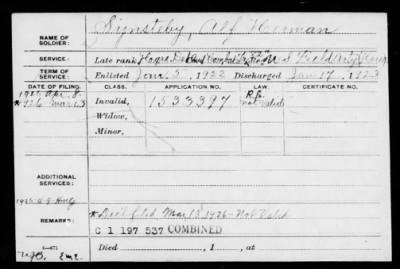 NAME OF SOLDIER: Synsteby, Alf Herman
SERVICE: Late rank, U S Field Arty
TERM OF SERVICE: Enlisted June 5, 1922 Discharged Jan 17, 1923
DATE OF FILING. CLASS. APPLICATION NO. LAW. CERTIFICATE NO.
1926 Apr. 8. Invalid, 1533397
*1926 Mar. 13 not valid
Widow,
Minor,
ADDITIONAL SERVICES:
REMARKS: * Decl filed Mar 13 1926 - Not Valid
C 1 197 537 COMBINED
Died , 1 , at